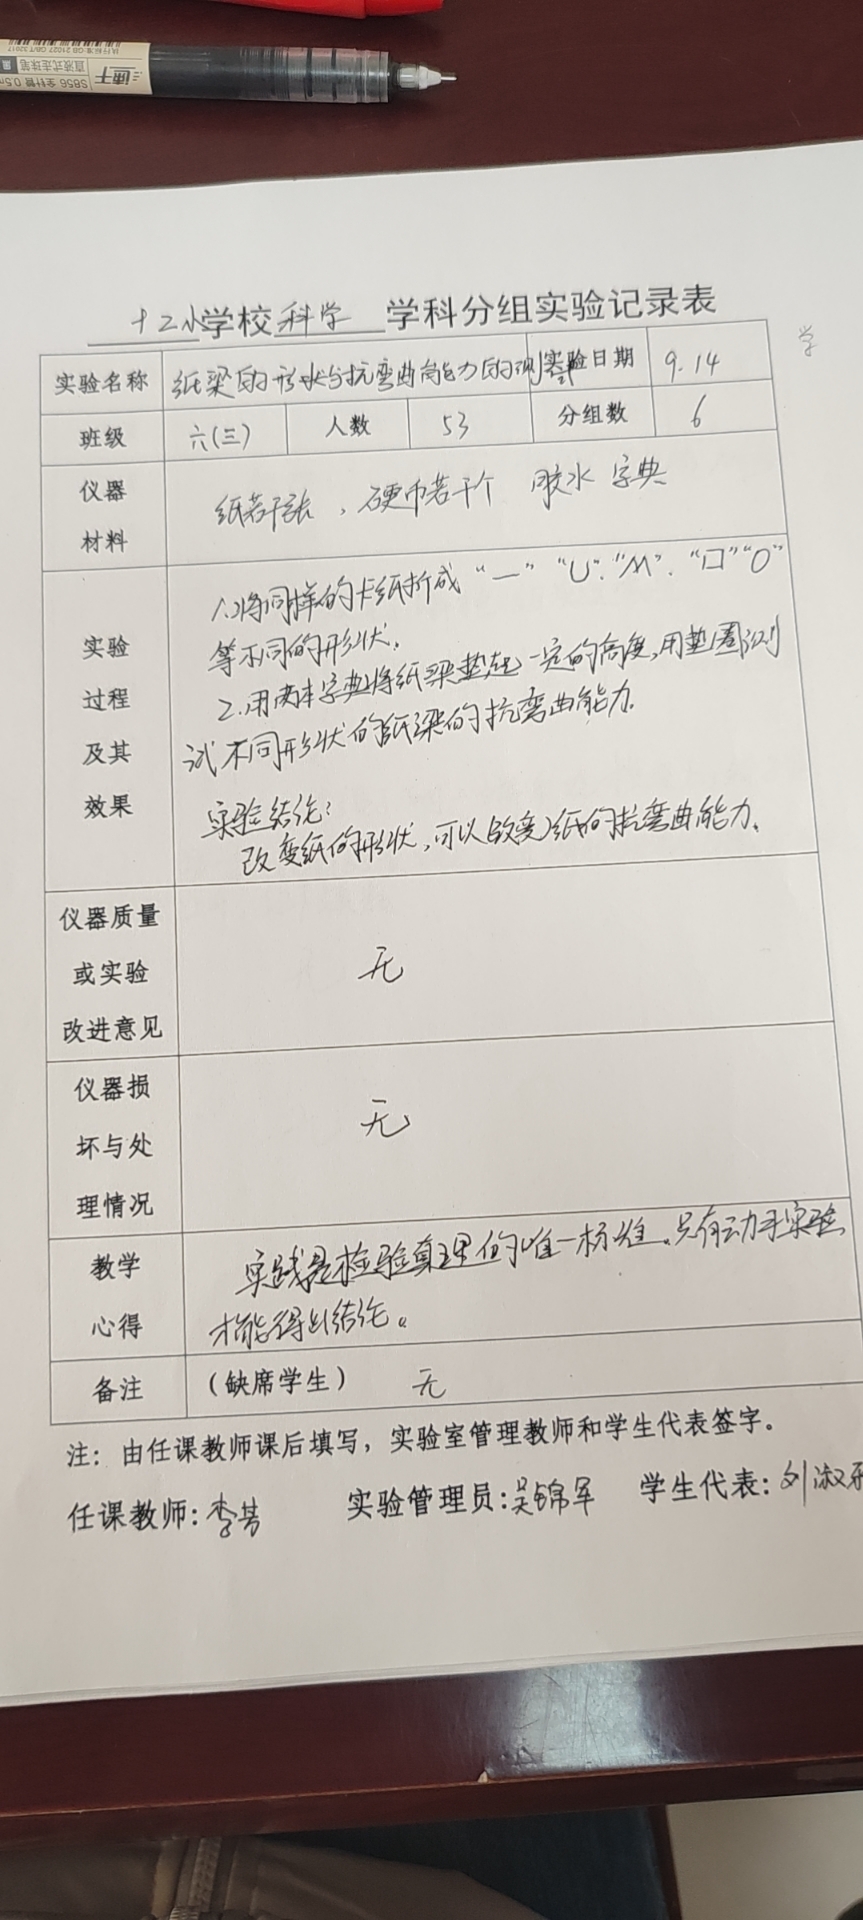 执行标准:GB/T 32017
直液式走珠笔 黑
S856 全针管 0.5m
速干
十二小学校 科学 学科分组实验记录表
学
实验名称 纸梁的形状与抗弯曲能力的测试 实验日期 9.14
班级 六(三) 人数 53 分组数 6
仪器
材料
纸若干张，硬币若干个 胶水 字典
实验
过程
及其
效果
1.将同样的卡纸折成“一”“U”.“M”.“口”“O”
等不同的形状.
2.用两本字典将纸梁垫起一定的高度,用垫圈测
试不同形状的纸梁的抗弯曲能力.
实验结论:
改变纸的形状,可以改变纸的抗弯曲能力.
仪器质量
或实验
改进意见
无
仪器损
坏与处
理情况
无
教学
心得
实践是检验真理的唯一标准.只有动手实验
才能得出结论。
备注 (缺席学生) 无
注：由任课教师课后填写，实验室管理教师和学生代表签字。
任课教师: 李芳 实验管理员: 吴锦军 学生代表: 刘淑